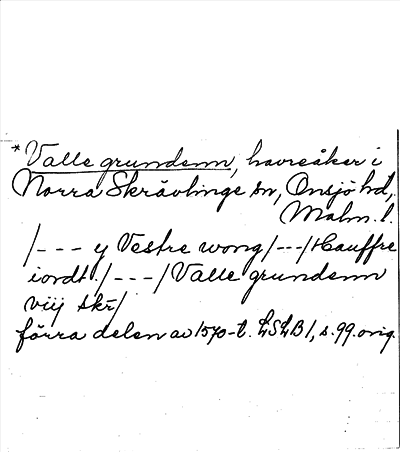 *Valle grundenn, havreåker i
Norra Skrävlinge sn, Onsjö hd,
Malm. l.
/--- y Vestre wong/---/Hauffre
iordt./---/Valle grundenn
viij skr/
förra delen av 1570-t. LSLB1, s. 99. orig.